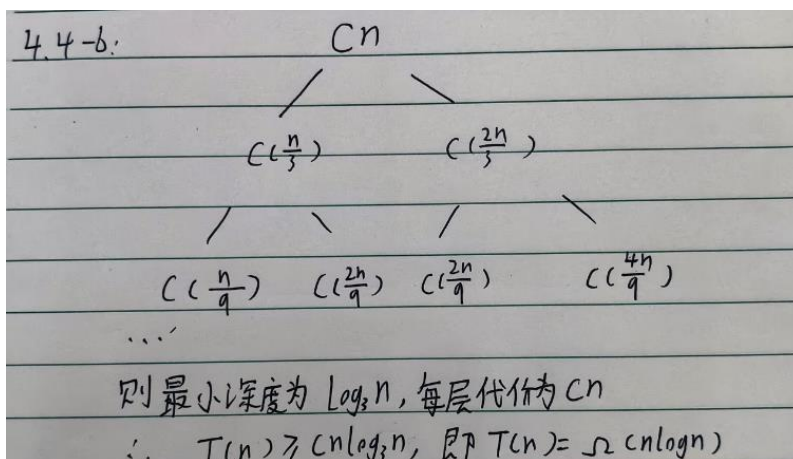 4.4-6:
Cn
C(n/3) C(2n/3)
C(n/9) C(2n/9) C(2n/9) C(4n/9)
....
则最小深度为 log₃n, 每层代价为 Cn
∴ T(n) ≥ Cnlog₃n, 即 T(n) = Ω(nlogn)